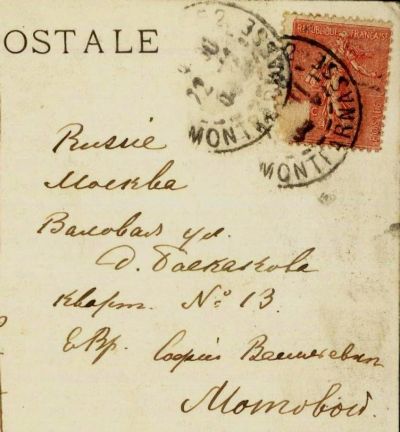 POSTALE
REPUBLIQUE FRANÇAISE
MONTPARNASSE
MONTPARNASSE
Russie
Москва
Валовая ул.
д. Баскакова
кварт. № 13.
Е.Вр. Софіи Васильевне
Мотовой.